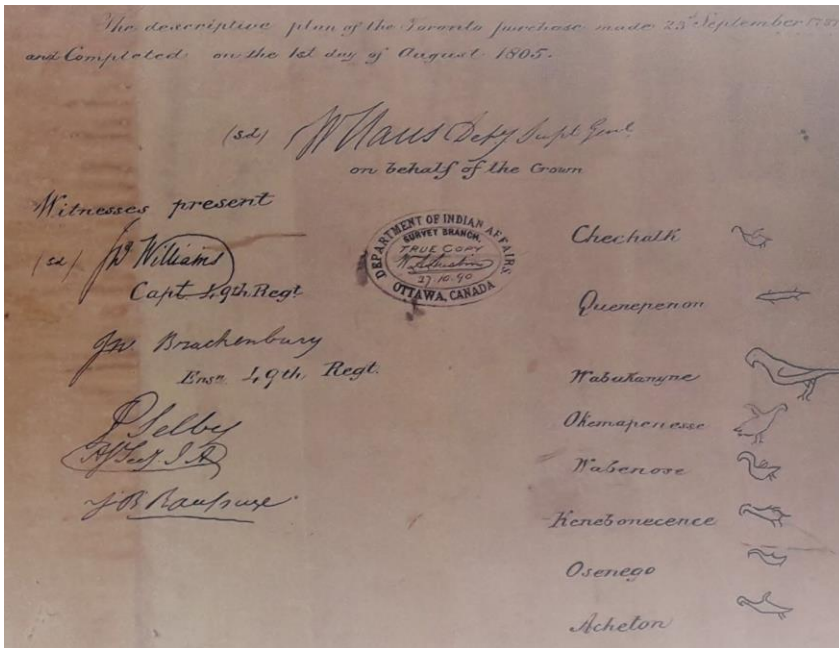 The descriptive plan of the Toronto purchase made 23d September 1787
and Completed on the 1st day of August 1805.
(sd) W Claus Depy Supt Genl
on behalf of the Crown
Witnesses present
(sd) Jno Williams
Capt 49th Regt
Jno Brackenbury
Ensn 49th Regt.
P Selby
J B Rousseaux
DEPARTMENT OF INDIAN AFFAIRS
SURVEY BRANCH,
TRUE COPY
27.10.90
OTTAWA, CANADA
Chechalk
Quenepenon
Wabukanyne
Okemapenesse
Wabenose
Kenebonecence
Osenego
Acheton